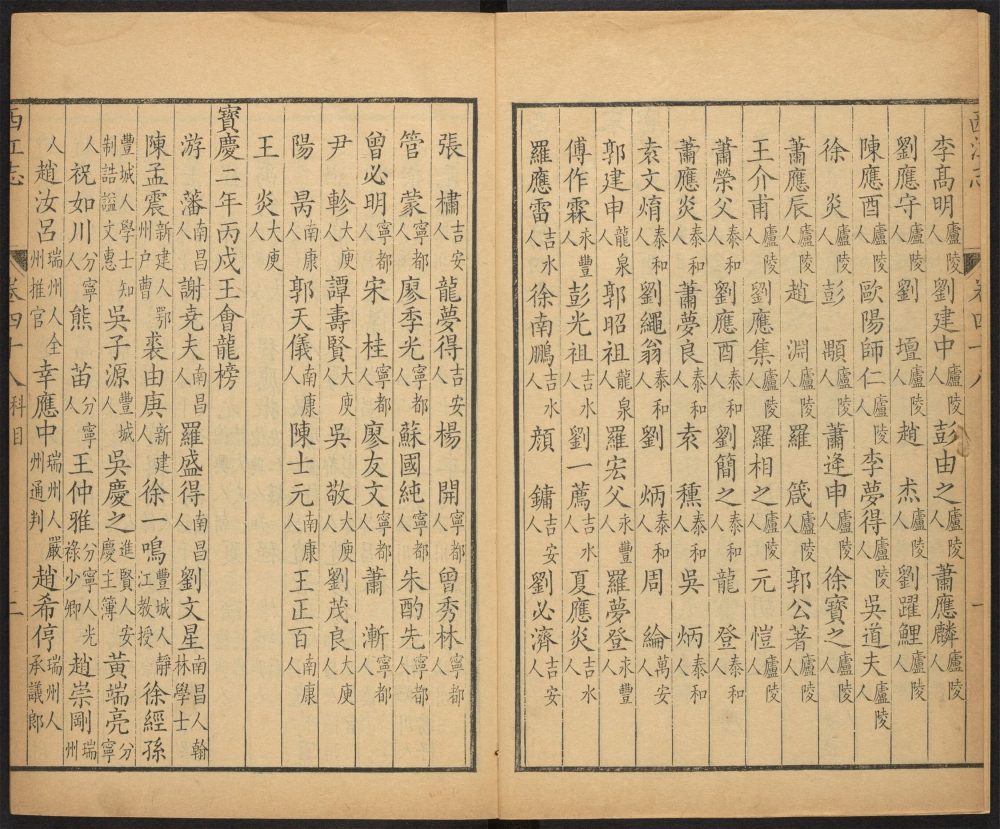 西江志 卷四十八 一
李高明廬陵人 劉建中廬陵人 彭由之廬陵人 蕭應麟廬陵人
劉應守廬陵人 劉壇廬陵人 趙杰廬陵人 劉躍鯉廬陵人
陳應酉廬陵人 歐陽師仁廬陵人 李夢得廬陵人 吳道夫廬陵人
徐炎廬陵人 彭顒廬陵人 蕭逢申廬陵人 徐寶之廬陵人
蕭應辰廬陵人 趙淵廬陵人 羅箴廬陵人 郭公著廬陵人
王介甫廬陵人 劉應集廬陵人 羅相之廬陵人 元愷廬陵人
蕭榮父泰和人 劉應酉泰和人 劉簡之泰和人 龍登泰和人
蕭應炎泰和人 蕭夢良泰和人 袁穤泰和人 吳炳泰和人
袁文焴泰和人 劉繩翁泰和人 劉炳泰和人 周綸萬安人
郭建申龍泉人 郭昭祖龍泉人 羅宏父永豐人 羅夢登永豐人
傅作霖永豐人 彭光祖吉水人 劉一薦吉水人 夏應炎吉水人
羅應雷吉水人 徐南鵬吉水人 顔鏞吉安人 劉必濟吉安人
張橚吉安人 龍夢得吉安人 楊開寧都人 曾秀林寧都人
管蒙寧都人 廖季光寧都人 蘇國純寧都人 朱酌先寧都人
曾必明寧都人 宋桂寧都人 廖友文寧都人 蕭漸寧都人
尹軫大庾人 譚壽賢大庾人 吳敬大庾人 劉茂良大庾人
陽昺南康人 郭天儀南康人 陳士元南康人 王正百南康人
王炎大庾人
寶慶二年丙戌王會龍榜
游藩南昌人 謝堯夫南昌人 羅盛得南昌人 劉文星南昌人翰林學士
陳孟震新建人鄂州户曹 裘由庚新建人 徐一鳴豐城人靜江教授 徐經孫
豐城人學士知制誥諡文惠 吳子源豐城人 吳慶之進賢人安慶主簿 黃端亮分寧
人 祝如川分寧人 熊苗分寧人 王仲雅分寧人光祿少卿 趙崇剛瑞州
人 趙汝呂瑞州人全州推官 幸應中瑞州人嚴州通判 趙希停瑞州人承議郎
西江志 卷四十八 科目 二